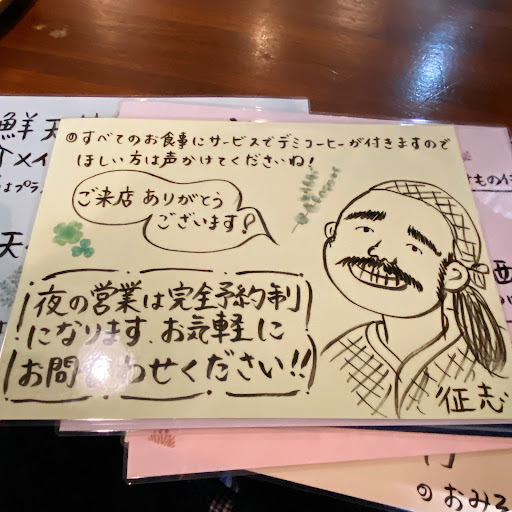 ◎すべてのお食事にサービスでデミコーヒーが付きますので
ほしい方は声かけてくださいね!
ご来店ありがとう
ございます!
夜の営業は完全予約制
になります、お気軽に
お問 わせください!!
征志
鮮天
天
のおみそ